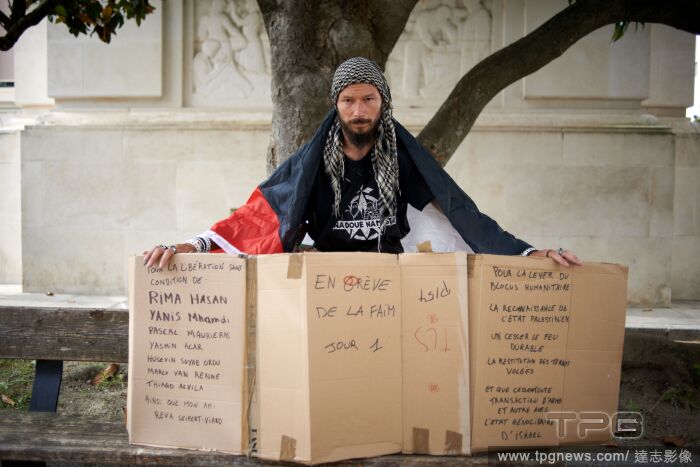 POUR LA LIBÉRATION SANS
CONDITION DE:
RIMA HASAN
YANIS MHAMDI
PASCAL MAURIERAS
YASMIN ACAR
HUSEYIN SUYAB ORDU
MARCO VAN RENNE
THIAGO AVILA
AINSI QUE MON AMI
REVA SEIFERT-VIARD
EN GRÈVE
DE LA FAIM
JOUR 1
POUR LA LEVER DU
BLOCUS HUMANITAIRE
LA RECONNAISSANCE DE
L'ÉTAT PALESTINIEN
UN CESSER LE FEU
DURABLE
LA RESTITUTION DES TERRIT
VOLÉES
ET QUE CESSE TOUTE
TRANSACTION D'ARME
ET AUTRE AVEC
L'ÉTAT GÉNOCIDAIRE
D'ISRAEL
TPG
www.tpgnews.com/ 達志影像